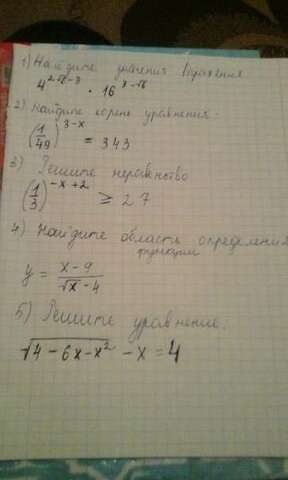 1) Найдите значения выражения
4^{2√6-3} · 16^{3-√6}
2) Найдите корень уравнения.
(1/49)^{3-x} = 343
3) Решите неравенство
(1/3)^{-x+2} ≥ 27
4) Найдите область определения
функции
y = (x-9)/(√x-4)
5) Решите уравнение:
√(4-6x-x²) -x=4